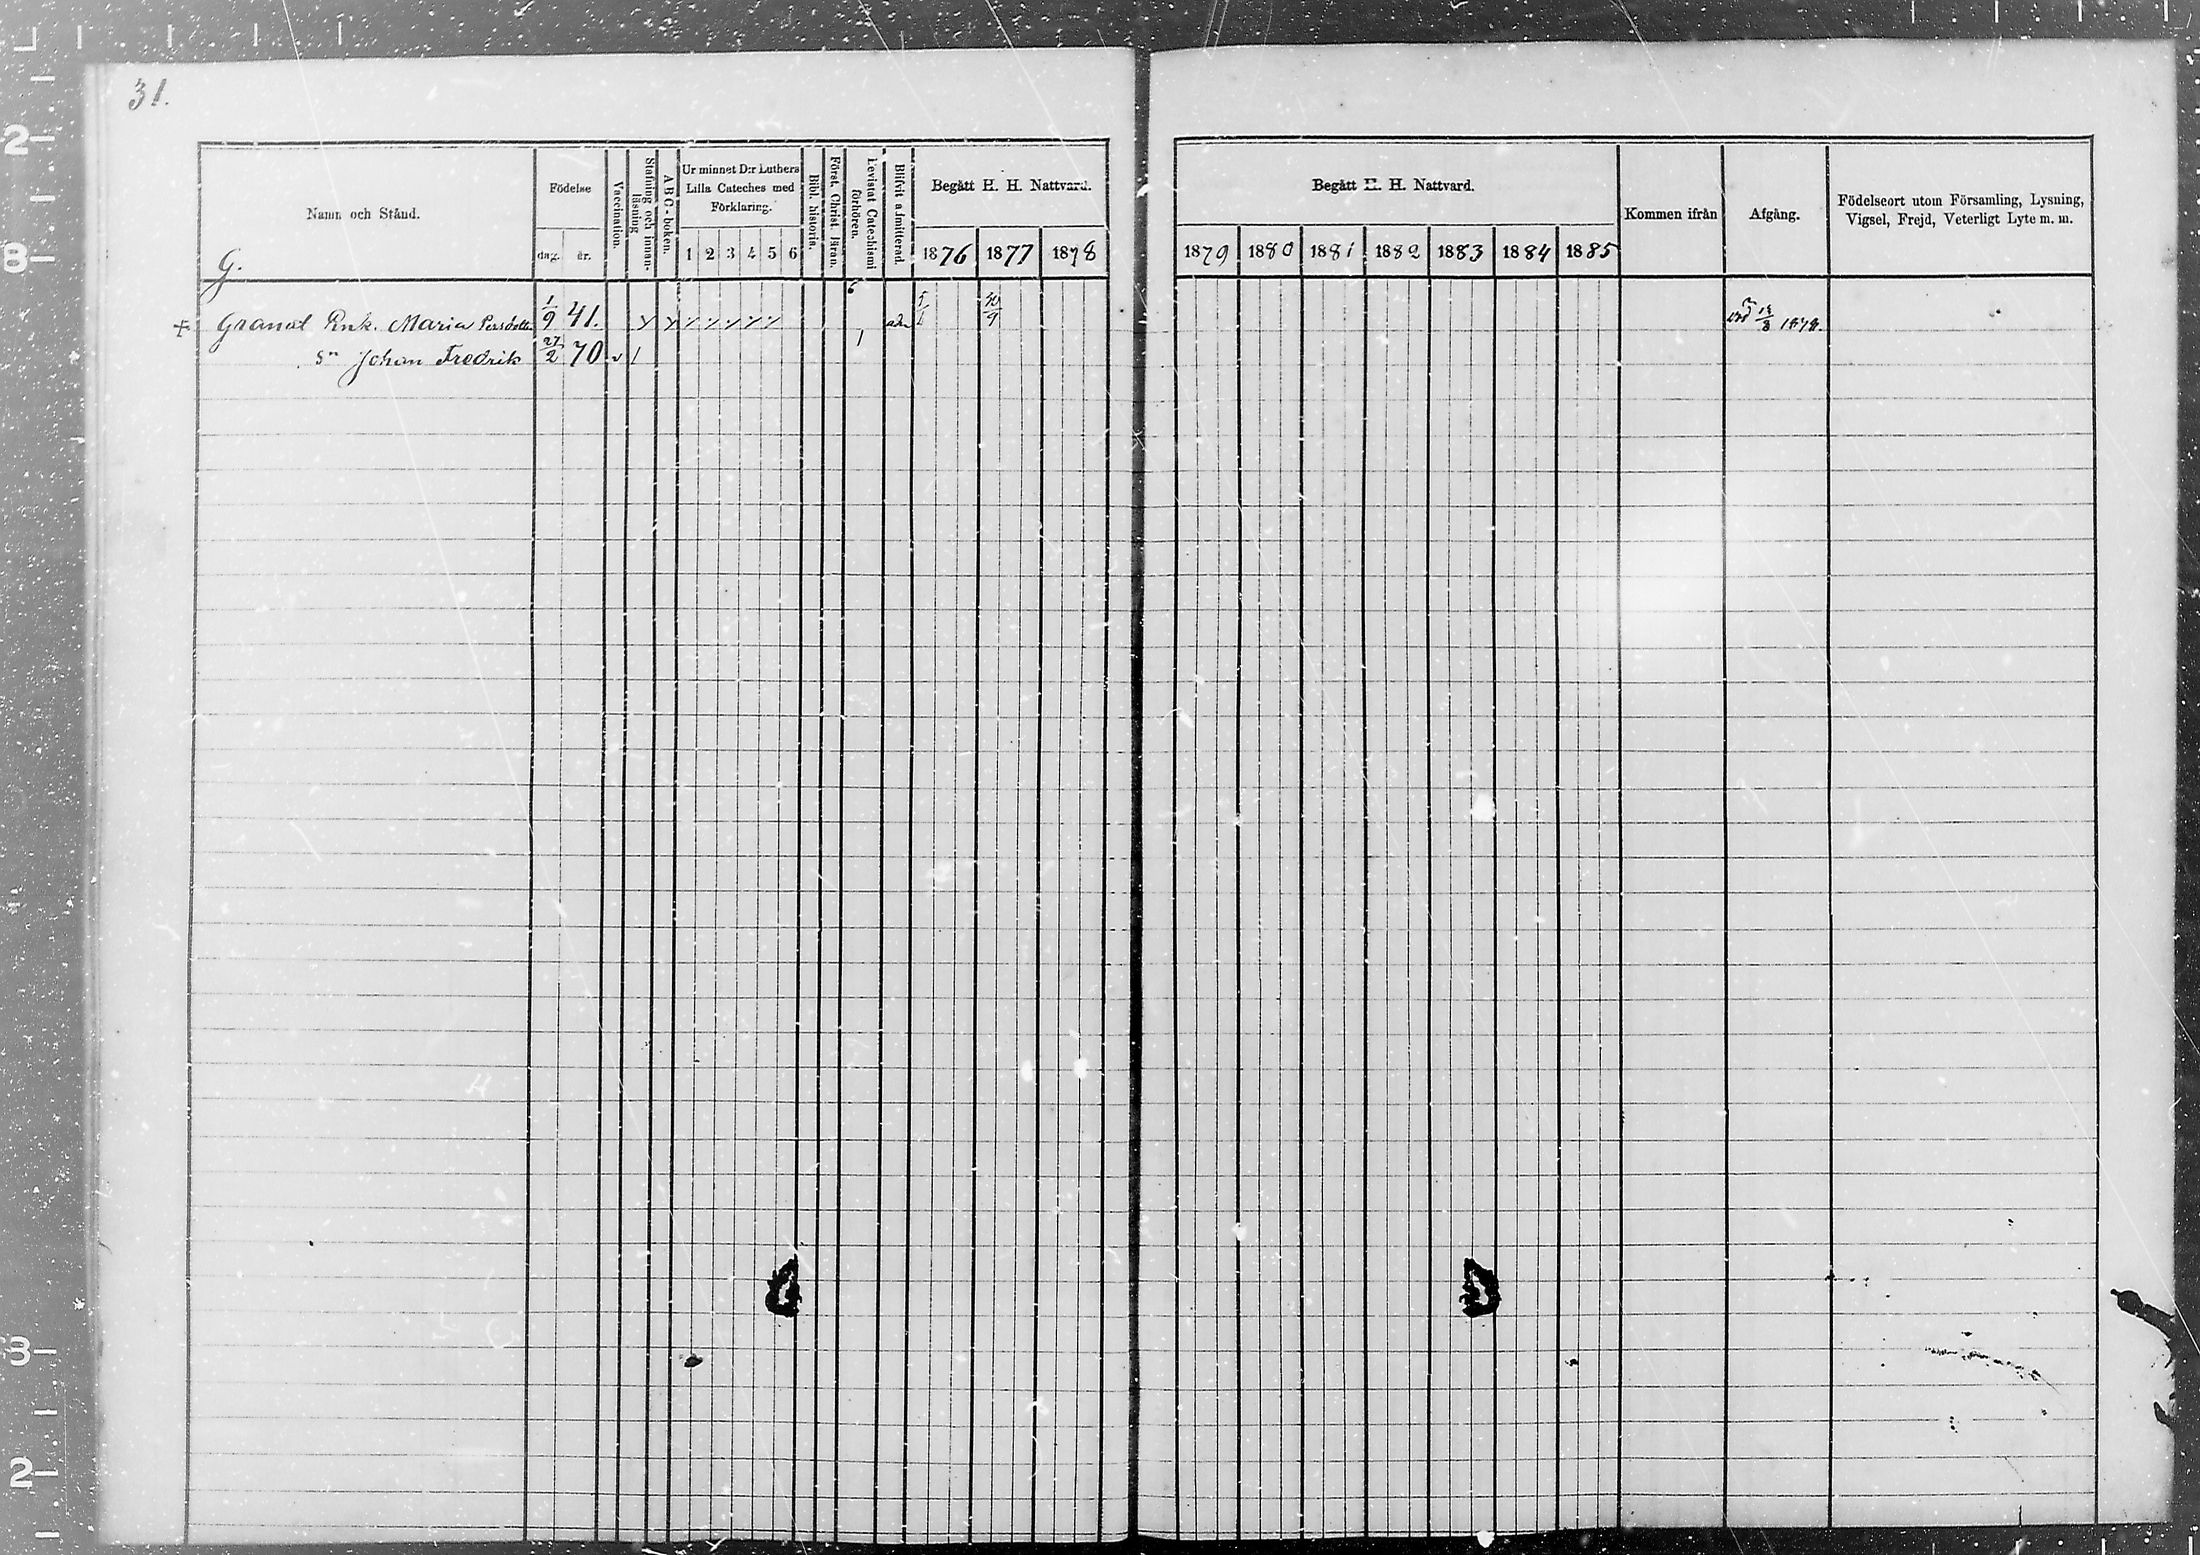 31.
Namn och Stånd.
Födelse
dag. år.
Vaccination.
Stafning och innan-läsning
ABC-boken.
Ur minnet D:r Luthers
Lilla Cateches med
Förklaring.
1 2 3 4 5 6
Bibl. historia.
Först. Christ. läran.
Bevistat Catechismi förhören.
Blifvit admitterad.
Begått H. H. Nattvard.
1876 1877 1878
Begått H. H. Nattvard.
1879 1880 1881 1882 1883 1884 1885
Kommen ifrån
Afgång.
Födelseort utom Församling, Lysning,
Vigsel, Frejd, Veterligt Lyte m. m.
G.
Enk. Maria Persdotter 1/9 41. 30/9 1878.
Sn Johan Fredrik 27/2 70 v 1 1
2
8
3
2